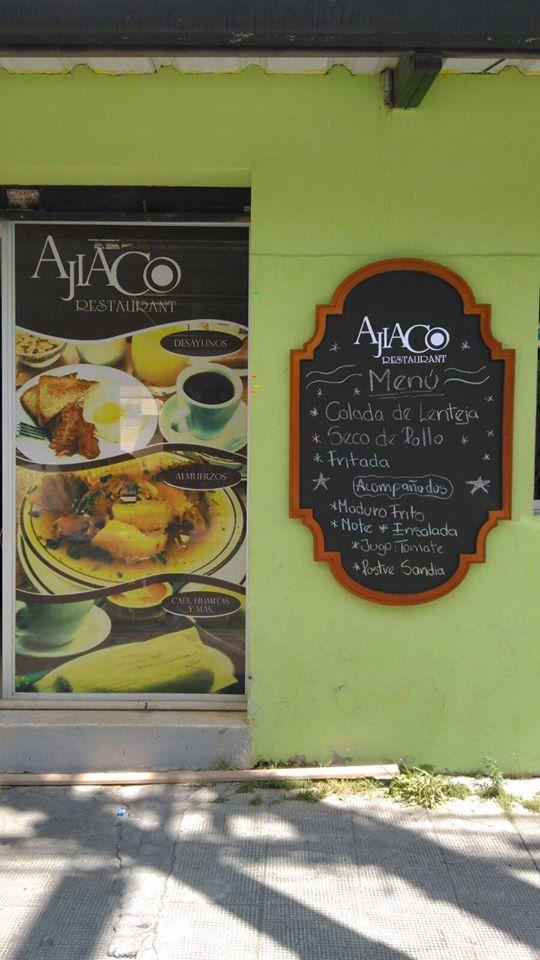 AJIACO
RESTAURANT
DESAYUNOS
ALMUERZOS
CAFE, HUMITAS
Y MAS...
AJIACO
RESTAURANT
Menú
* Colada de Lenteja
* Seco de Pollo
* Fritada
Acompañados
* Maduro Frito
* Mote * Ensalada
* Jugo: Tomate
* Postre: Sandia